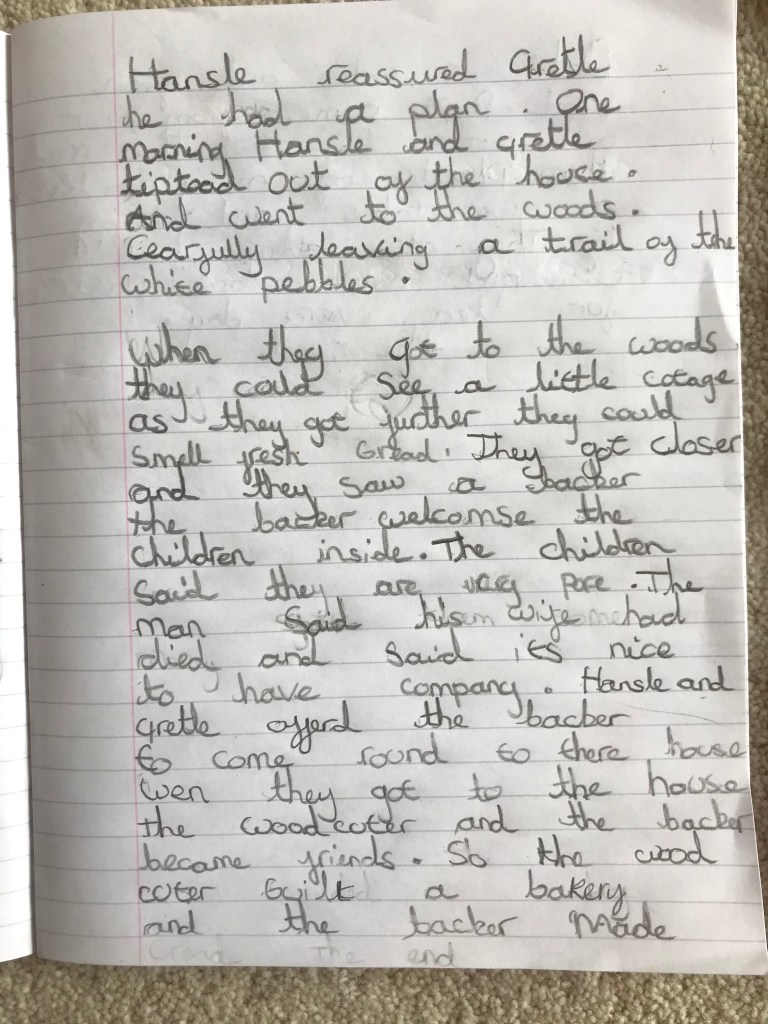 Hansle reassured Gretle
he had a plan. One
morning Hansle and gretle
tiptoad out of the house.
And went to the woods.
Cearfully leaving a trail of the
white pebbles.
When they got to the woods
they could see a little cotage
as they got further they could
smell fresh bread. They got closer
and they saw a backer
the backer welcomse the
children inside. The children
said they are very pore. The
man said his wife had
died and said it's nice
to have company. Hansle and
gretle offerd the backer
to come round to there house
wen they got to the house
the wood cuter and the backer
became friends. So the wood
cuter built a bakery
and the backer made
The end